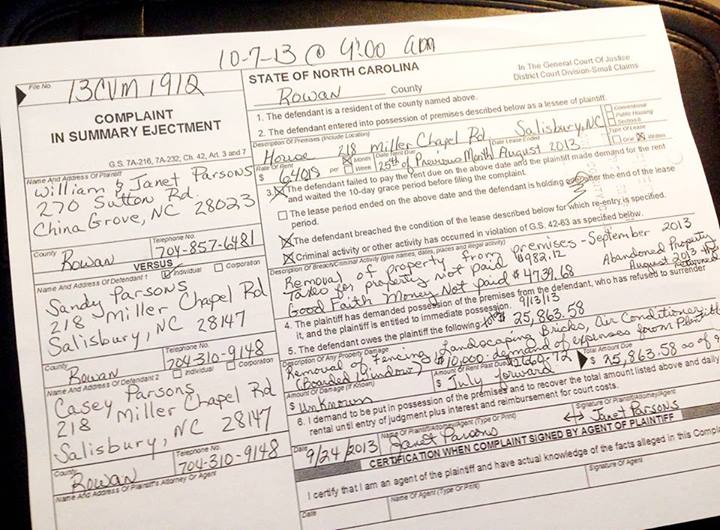 10-7-13 @ 9:00 am
File No.
13CVM 1912
COMPLAINT
IN SUMMARY EJECTMENT
G.S. 7A-216, 7A-232, Ch. 42, Art. 3 and 7
Name And Address Of Plaintiff
William & Janet Parsons
270 Sutton Rd.
China Grove, NC 28023
County
Telephone No.
Rowan
704-857-6481
VERSUS
Name And Address Of Defendant 1
Individual
Corporation
Sandy Parsons
218 Miller Chapel Rd
Salisbury, NC 28147
County
Telephone No.
Rowan
704-310-9148
Name And Address Of Defendant 2
Individual
Corporation
Casey Parsons
218 Miller Chapel Rd
Salisbury, NC 28147
County
Telephone No.
Rowan
704-310-9148
Name And Address Of Plaintiff's Attorney Or Agent
STATE OF NORTH CAROLINA
Rowan County
In The General Court Of Justice
District Court Division-Small Claims
1. The defendant is a resident of the county named above.
2. The defendant entered into possession of premises described below as a lessee of plaintiff.
Description Of Premises (Include Location)
Conventional
Public Housing
Section 8
House 218 Miller Chapel Rd. Salisbury, NC
Rate Of Rent
Month
Week
Date Rent Due
Date Lease Ended
Type Of Lease
Oral
Written
$ per
25th of Previous Month August 2013
3. The defendant failed to pay the rent due on the above date and the plaintiff made demand for the rent
and waited the 10-day grace period before filing the complaint.
The lease period ended on the above date and the defendant is holding over after the end of the lease
period.
The defendant breached the condition of the lease described below for which re-entry is specified.
Criminal activity or other activity has occurred in violation of G.S. 42-63 as specified below.
Description Of Breach/Criminal Activity (give names, dates, places and illegal activity)
Removal of property from premises - September 2013
Taxes for property Not paid $982.12 Abandoned Property
Good Faith Money Not paid $ August 2013
4. The plaintiff has demanded possession of the premises from the defendant, who has refused to surrender
it, and the plaintiff is entitled to immediate possession. 9/13/13
5. The defendant owes the plaintiff the following: $ 25,863.58
Description Of Any Property Damage
Removal of Fencing, Landscaping Bricks, Air Conditioner,
(Boarded Window) $10,000 demand of expenses from
Amount Of Damage (If Known)
Amount Of Rent Past Due
Total Amount Due
$ Unknown
$ July forward
$ 25,863.58 as of
6. I demand to be put in possession of the premises and to recover the total amount listed above and daily
rental until entry of judgment plus interest and reimbursement for court costs.
Date
Name Of Plaintiff/Attorney/Agent (Type Or Print)
Signature Of Plaintiff/Attorney/Agent
9/24/2013
Janet Parsons
Janet Parsons
CERTIFICATION WHEN COMPLAINT SIGNED BY AGENT OF PLAINTIFF
I certify that I am an agent of the plaintiff and have actual knowledge of the facts alleged in this
Date
Name Of Agent (Type Or Print)
Signature Of Agent